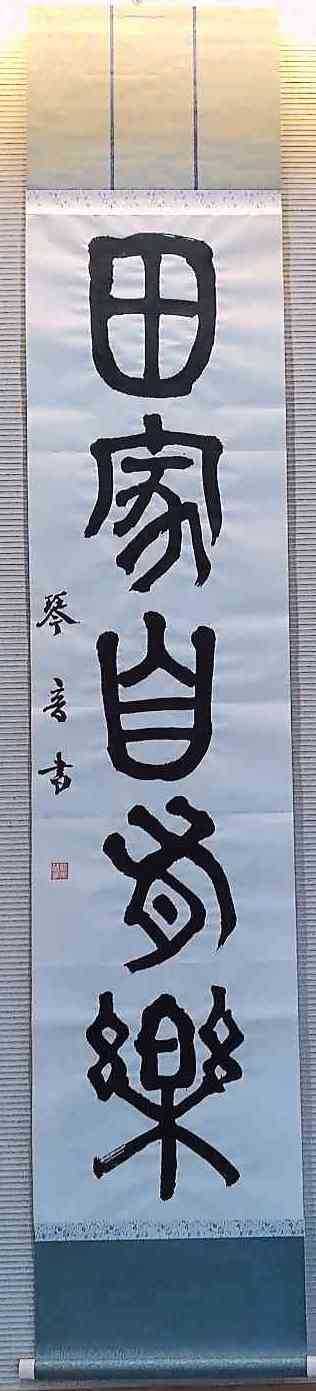 田家自有樂
琴音書